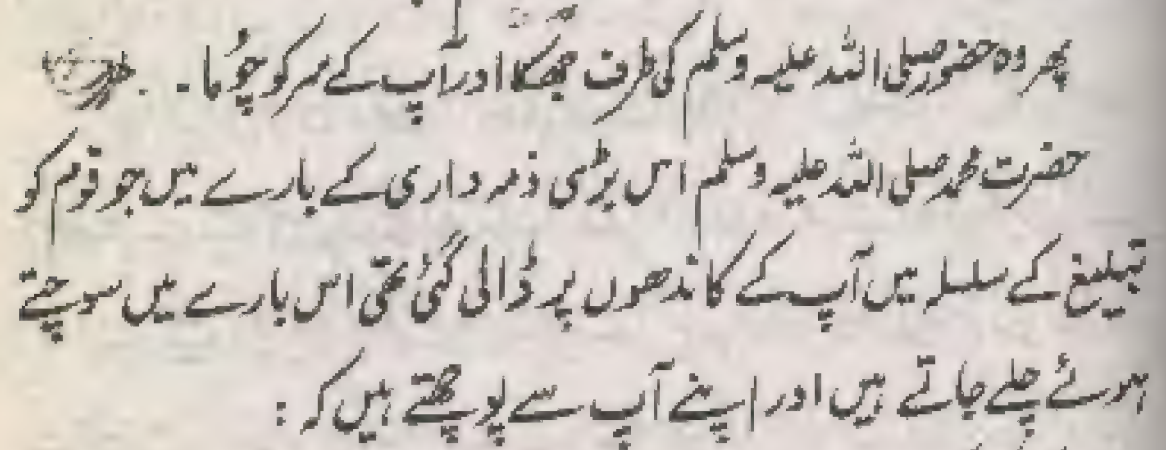 پھر وہ حضور صلی اللہ علیہ وسلم کی طرف جھکا اور آپ کے سر کو چُوما ۔
حضرت محمد صلی اللہ علیہ وسلم اس بڑی ذمہ داری کے بارے میں جو قوم کو
تبلیغ کے سلسلہ میں آپ کے کاندھوں پر ڈالی گئی تھی اس بارے میں سوچتے
ہوئے چلے جاتے ہیں اور اپنے آپ سے پوچھتے ہیں کہ :